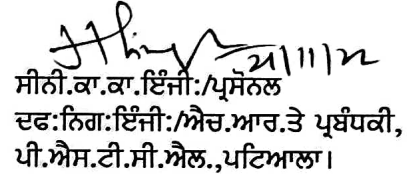 21/11/22
ਸੀਨੀ.ਕਾ.ਕਾ.ਇੰਜੀ:/ਪ੍ਰਸੋਨਲ
ਦਫ:ਨਿਗ:ਇੰਜੀ:/ਐਚ.ਆਰ.ਤੇ ਪ੍ਰਬੰਧਕੀ,
ਪੀ.ਐਸ.ਟੀ.ਸੀ.ਐਲ.,ਪਟਿਆਲਾ।